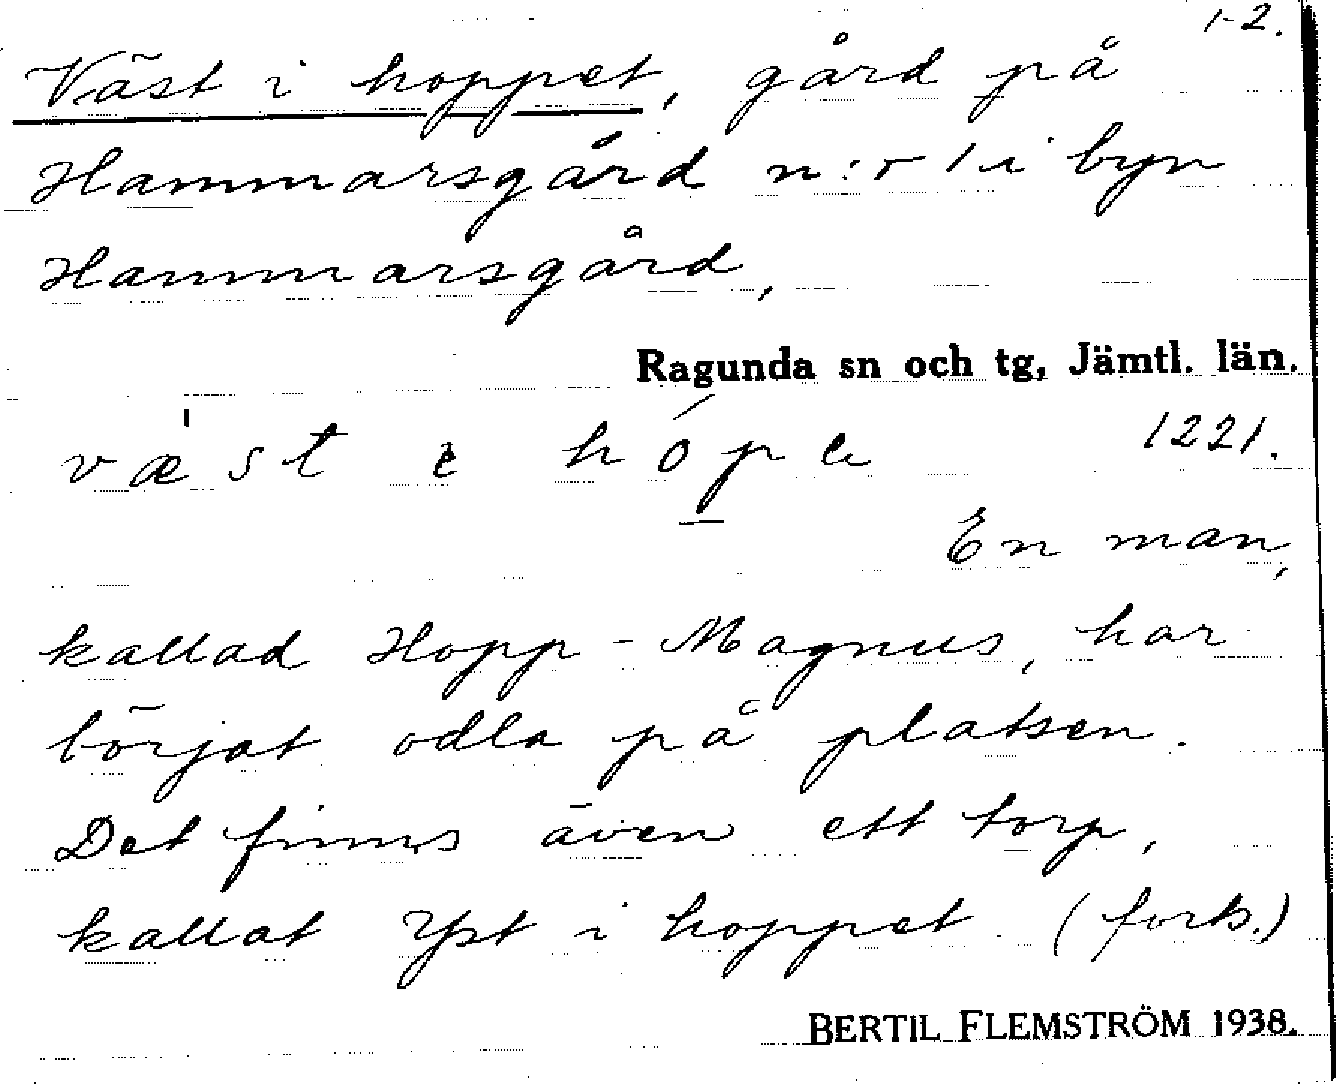 1-2.
Väst i hoppet, gård på
Hammarsgård n:r 1 i byn
Hammarsgård,
Ragunda sn och tg, Jämtl. län.
væst e hópe 1221.
En man,
kallad Hopp-Magnus, har
börjat odla på platsen.
Det finns även ett torp,
kallat Yst i hoppet. (forts.)
BERTIL FLEMSTRÖM 1938.